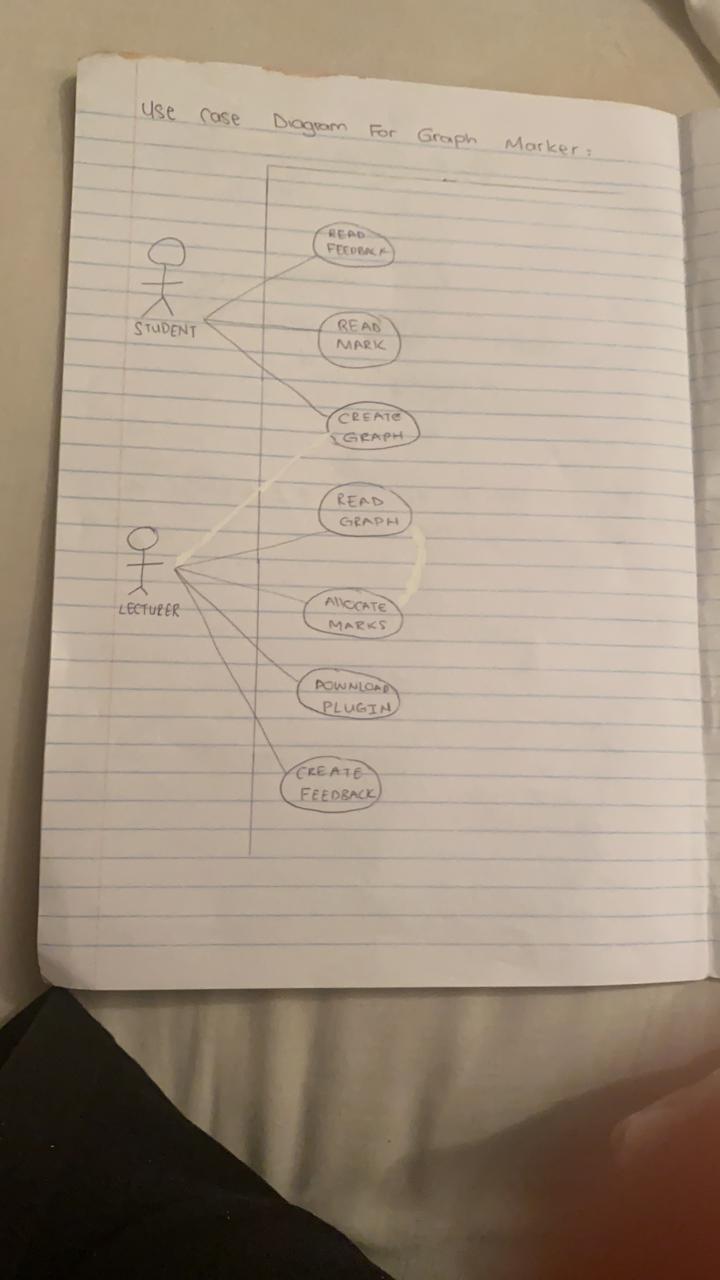 Use Case Diagram For Graph Marker:
READ
FEEDBACK
STUDENT
READ
MARK
CREATE
GRAPH
READ
GRAPH
LECTURER
ALLOCATE
MARKS
DOWNLOAD
PLUGIN
CREATE
FEEDBACK